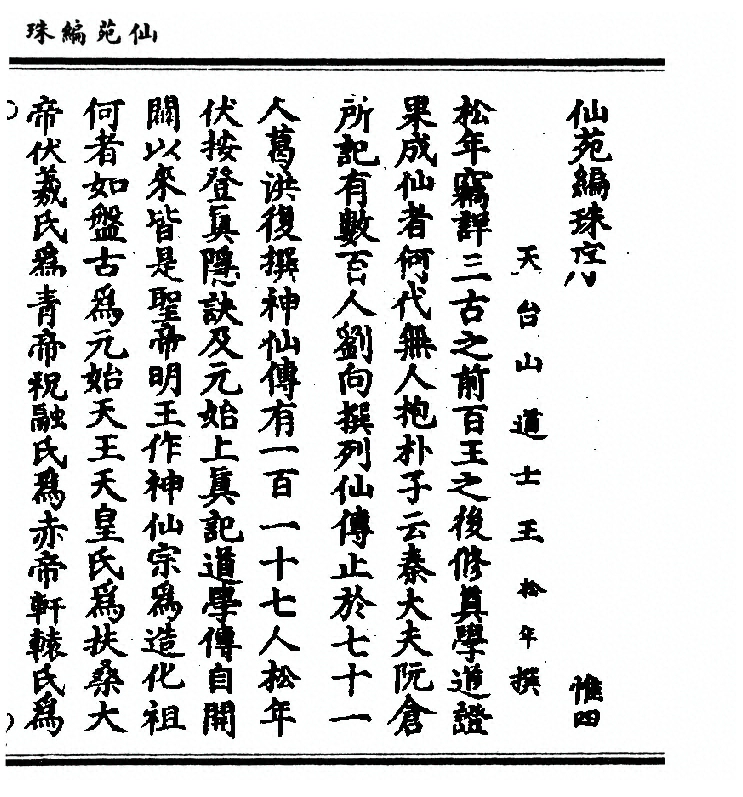 仙苑編珠
仙苑編珠序
惟四
天台山道士王松年撰
松年竊詳三古之前百王之後修眞學道證
果成仙者何代無人抱朴子云秦大夫阮倉
所記有數百人劉向撰列仙傳止於七十一
人葛洪復撰神仙傳有一百一十七人松年
伏按登眞隱訣及元始上眞記道學傳自開
闢以來皆是聖帝明王作神仙宗爲造化祖
何者如盤古爲元始天王天皇氏爲扶桑大
帝伏羲氏爲青帝祝融氏爲赤帝軒轅氏爲